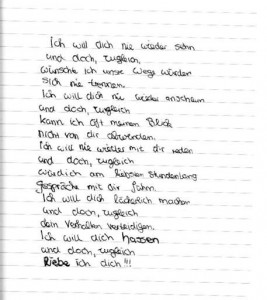 Ich will dich nie wieder sehn
und doch, zugleich,
wünschte ich unsre Wege würden
sich nie trennen.
Ich will dich nie wieder anschauen
und doch, zugleich
kann ich oft meinen Blick
nicht von dir abwenden.
Ich will nie wieder mit dir reden
und doch, zugleich
würd ich am liebsten Stundenlang
gespräche mit dir führn.
Ich will dich lächerlich machen
und doch, zugleich
dein Verhalten verteidigen.
Ich will dich hassen
und doch, zugleich
liebe ich dich!!!